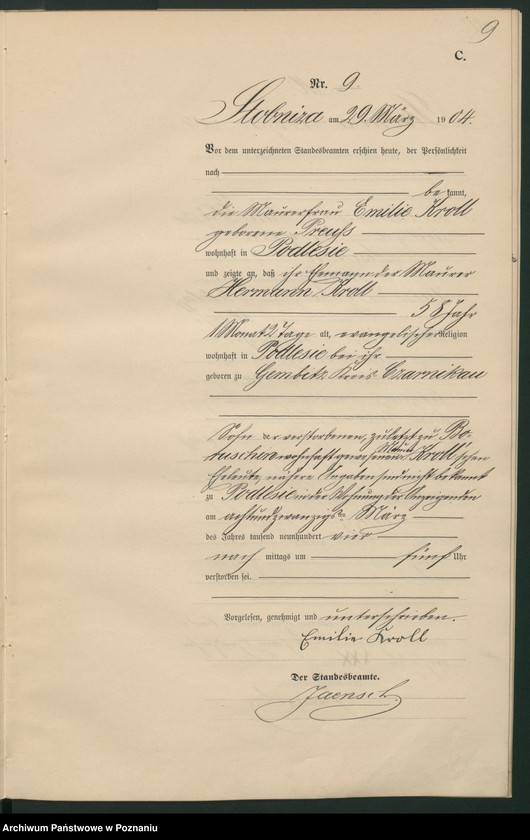 9
C.
Nr. 9.
Stobniza am 29. März 1904.
Vor dem unterzeichneten Standesbeamten erschien heute, der Persönlichkeit
nach
bekannt,
die Maurerfrau Emilie Kroll
geborene Preuß
wohnhaft in Podlesie
und zeigte an, daß ihr Ehemann der Maurer
Hermann Kroll
58 Jahr
1 Monat 2 Tage alt, evangelischer Religion
wohnhaft in Podlesie bei ihr
geboren zu Gembitz Kreis Czarnikau
Sohn der verstorbenen, zuletzt zu
wohnhaft gewesenen Maurer Kroll'schen
Eheleute, nähere Angaben sind nicht bekannt
zu Podlesie in der Wohnung der Anzeigenden
am achtundzwanzigsten März
des Jahres tausend neunhundert vier
nach mittags um fünf Uhr
verstorben sei.
Vorgelesen, genehmigt und unterschrieben.
Emilie Kroll
Der Standesbeamte.
Jaensch.
Archiwum Państwowe w Poznaniu